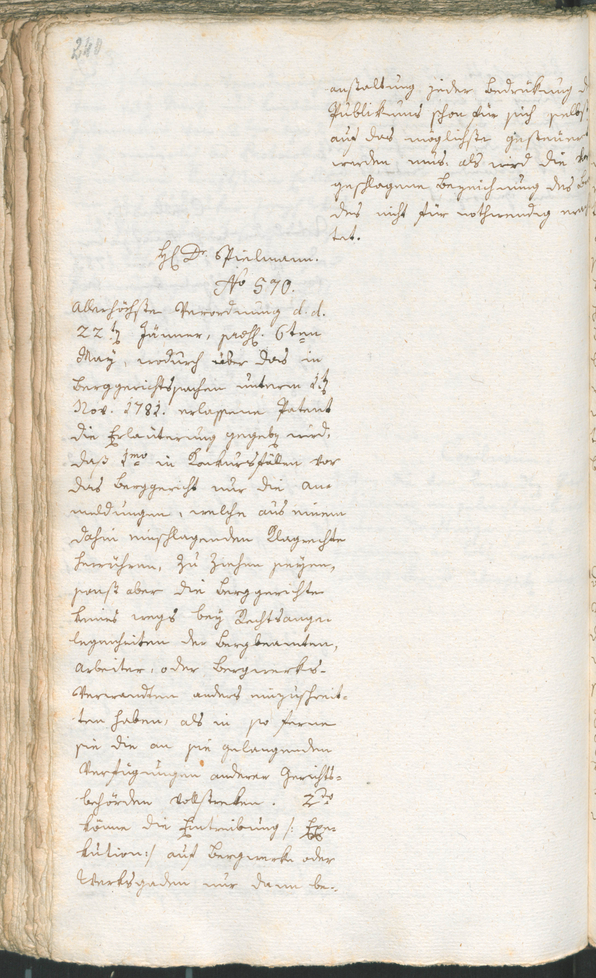 240
anstaltung jeder Bedrükung d
Publikums schon für sich selbst
auf das möglichste gesteuert
werden muß, als wird die
geschlagene Bezeichnung des
des nicht für nothwendig
tet.
H Dr. Spielmann.
No 570.
Allerhöchste Verordnung d. d.
22t Jänner, praes. 6ten
May, wodurch über das in
Berggerichtssachen unterm 1t
Nov. 1781. erlassene Patent
die Erläuterung gegeben wird,
daß 1mo in Konkursfällen vor
das Berggericht nur die An-
meldungen, welche aus einem
dahin einschlagenden Klagrechte
herrühren, zu ziehen seyen,
sonst aber die Berggerichte
keines wegs bey Rechtsange
legenheiten der Bergbeamten,
Arbeiter, oder Bergwerks-
Verwandten anders einzuschreit-
ten haben, als in so ferne
sie die an sie gelangenden
Verfügungen anderer Gerichts-
behörden vollstreken. 2do
könne die Eintreibung /: Exe-
kution :/ auf Bergwerk oder
Werksgaden nur dann be-